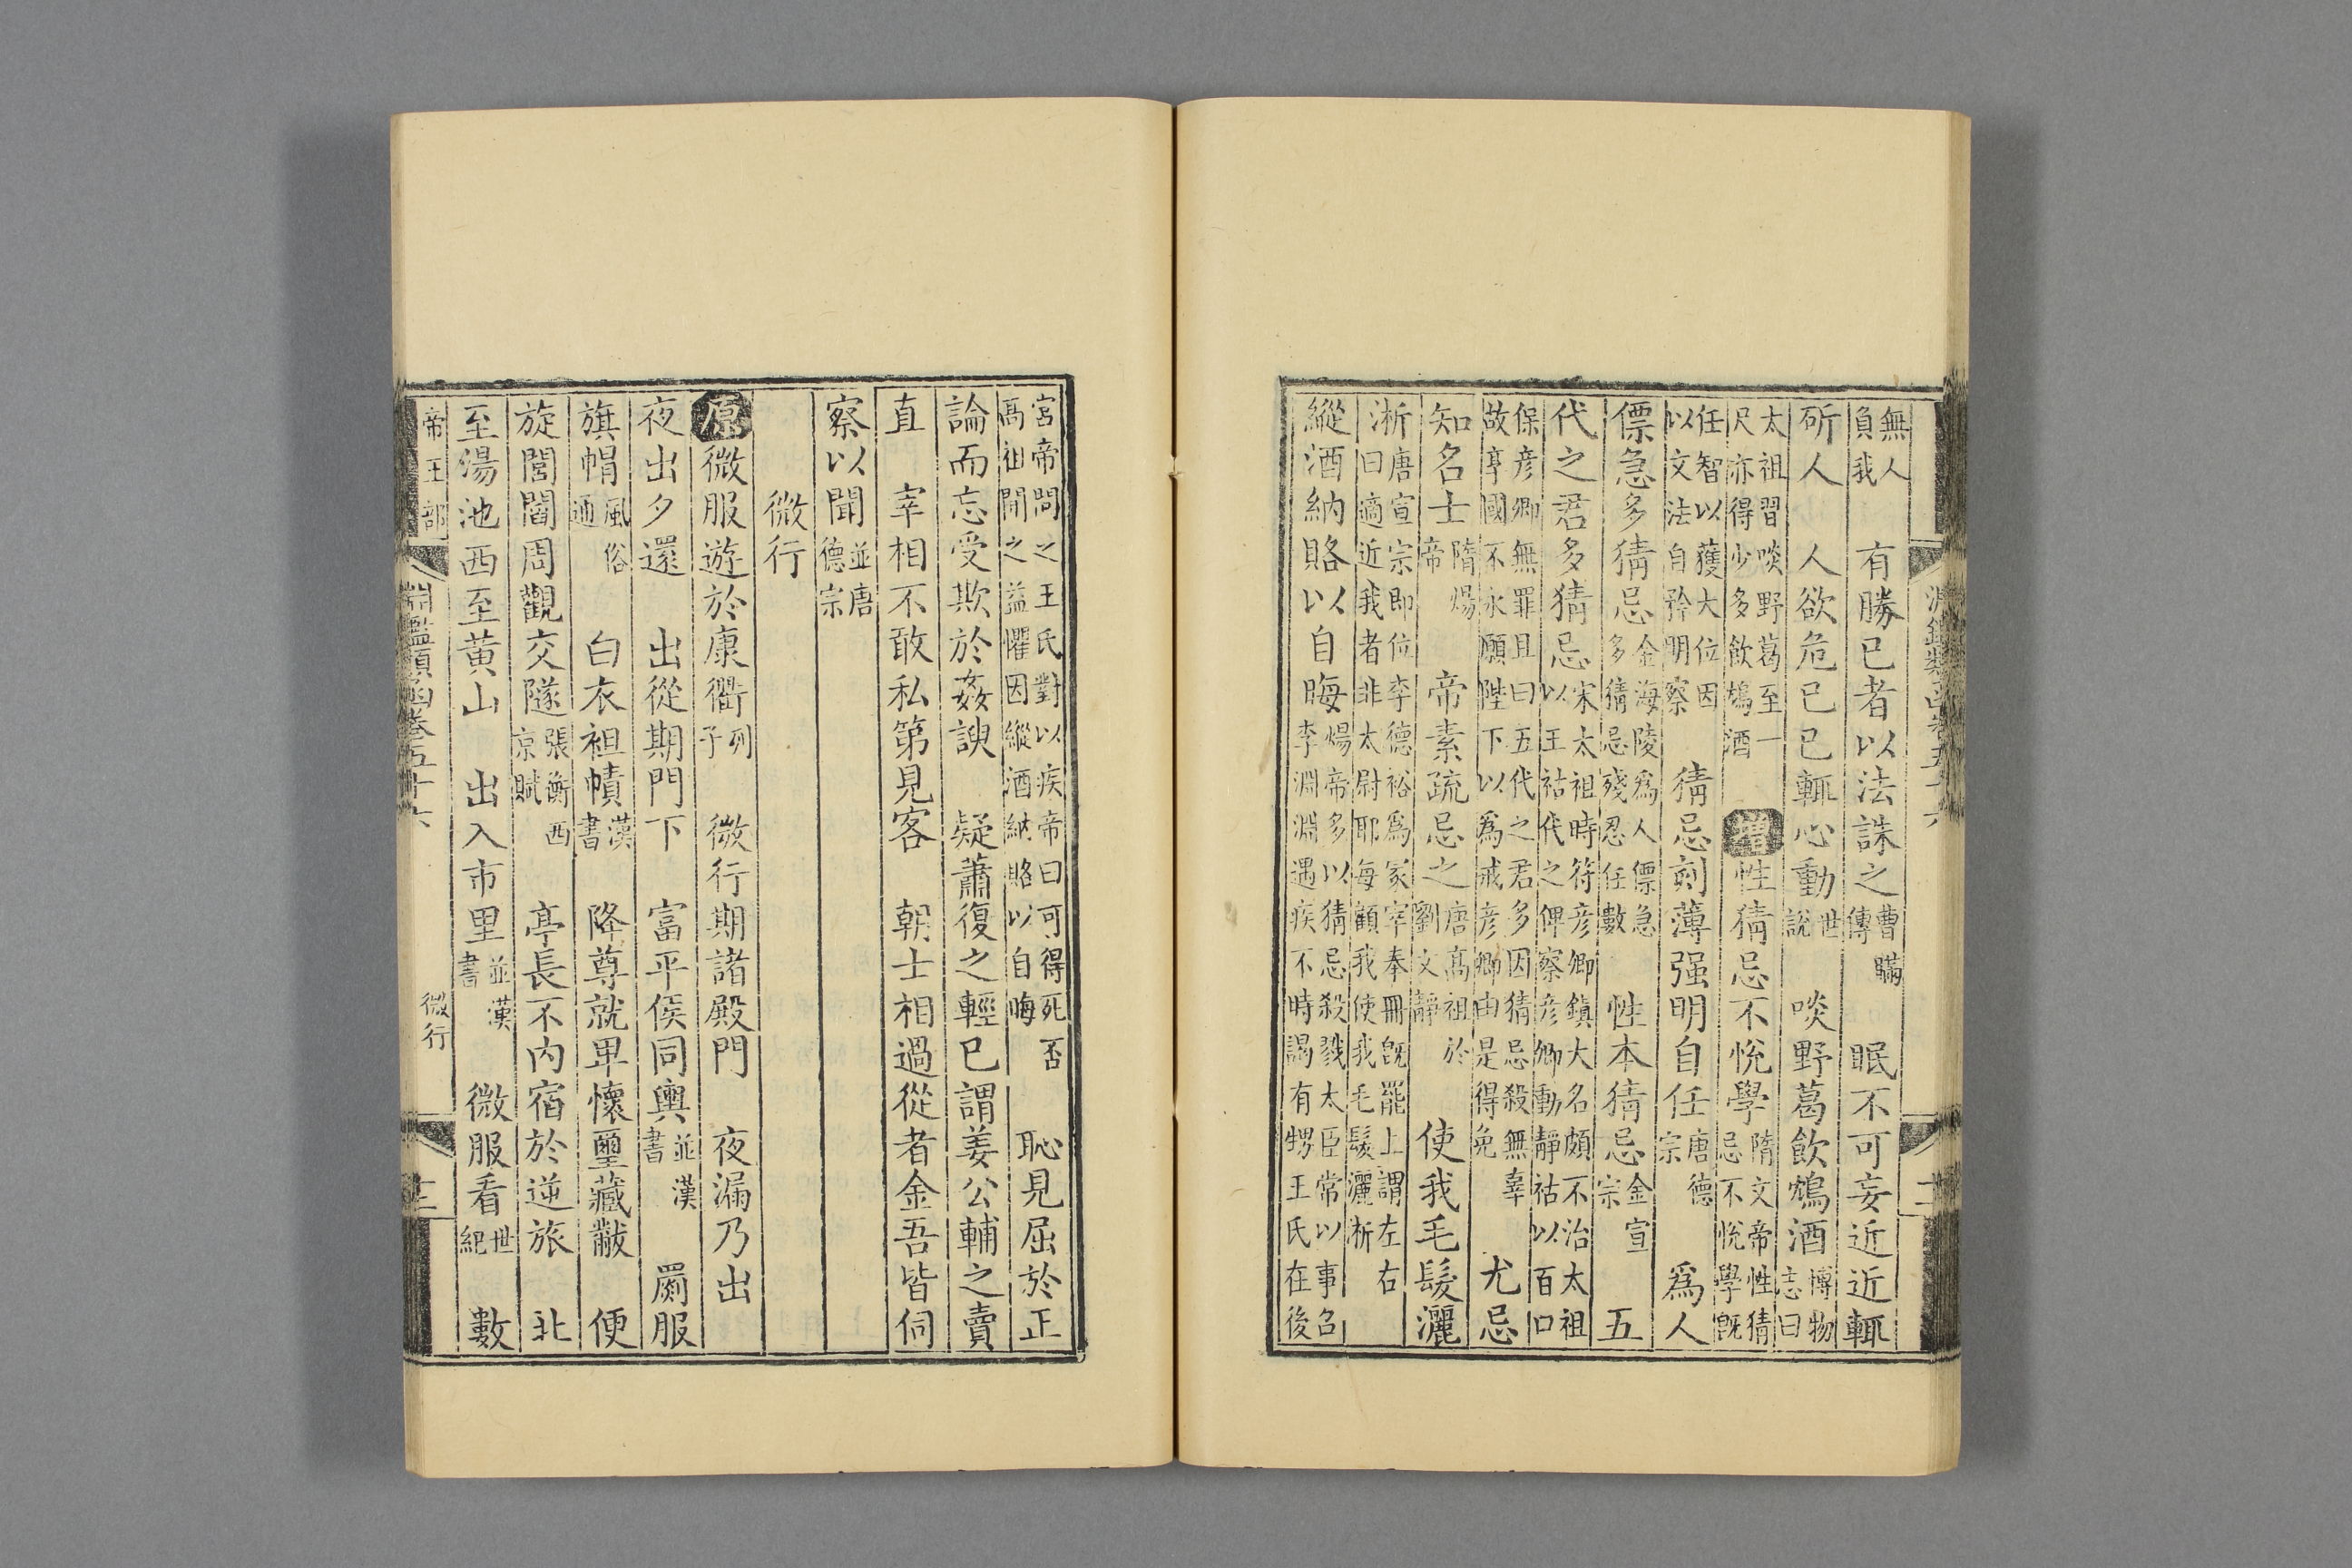 無人負我　有勝已者以法誅之曹瞞傳　眠不可妄近近輒
斫人　人欲危已已輒心動世說　啖野葛飲鴆酒博物志曰
太祖習啖野葛至一尺亦得少多飲鴆酒　增性猜忌不悅學隋文帝性猜忌不悅學旣
任智以獲大位因以文法自矜明察　猜忌刻薄强明自任唐德宗　爲人
僄急多猜忌金海陵爲人僄急多猜忌殘忍任數　性本猜忌金宣宗　五
代之君多猜忌宋太祖時符彥卿鎮大名頗不治太祖以王祜代之俾察彥卿動靜祜以百口
保彥卿無罪且曰五代之君多因猜忌殺無辜故享國不永願陛下以爲戒彥卿由是得免　尤忌
知名士隋煬帝　帝素疏忌之唐高祖於劉文靜　使我毛髮灑
淅唐宣宗即位李德裕爲冢宰奉冊旣罷上謂左右曰適近我者非太尉耶每顧我使我毛髮灑淅
縱酒納賂以自晦煬帝多以猜忌殺戮太臣常以事召李淵淵遇疾不時謁有甥王氏在後
宮帝問之王氏對以疾帝曰可得死否高祖聞之益懼因縱酒納賂以自晦　恥見屈於正
論而忘受欺於姦諛　疑蕭復之輕已謂姜公輔之賣
直　宰相不敢私第見客　朝士相過從者金吾皆伺
察以聞並唐德宗
微行
原微服遊於康衢列子　微行期諸殿門　夜漏乃出
夜出夕還　出從期門下　富平侯同輿並漢書　罽服
旗帽風俗通　白衣袒幘漢書　降尊就卑懷璽藏黻　便
旋閭閻周觀交隧張衡西京賦　亭長不内宿於逆旅　北
至湯池西至黃山　出入市里並漢書　微服看世紀　數
帝王部　淵鑑類函卷五十六　微行